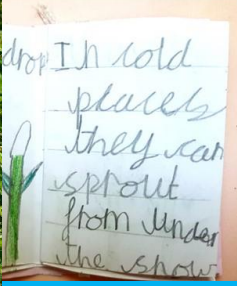 drop
In cold
places
they can
sprout
from under
the snow